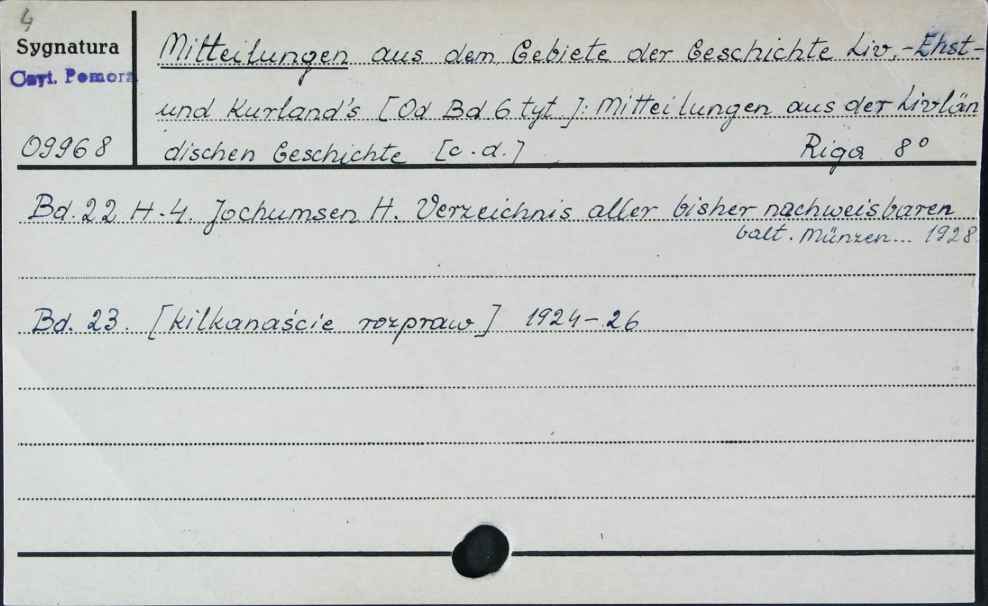 4
Sygnatura
Czyt. Pomorz
09968
Mitteilungen aus dem Gebiete der Geschichte Liv,- Ehst-
und Kurland's [Od Bd 6 tyt.]: Mitteilungen aus der Livlän
dischen Geschichte [c.d.] Riga 8°
Bd. 22 H-4. Jochumsen H. Verzeichnis aller bisher nachweisbaren
balt. Münzen... 1928
Bd. 23. [kilkanaście rozpraw] 1924-26